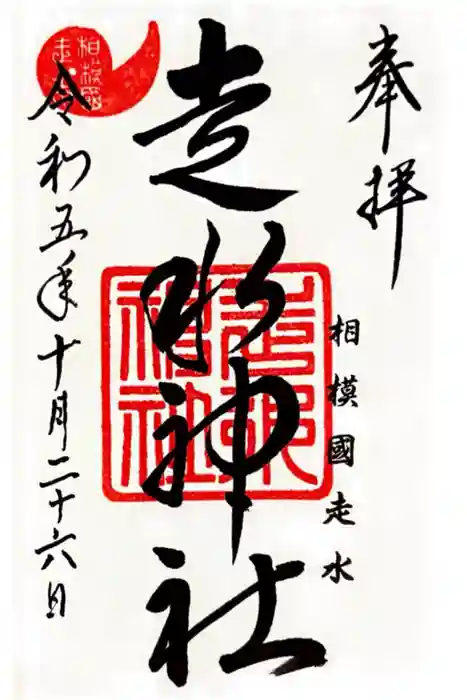 奉拝
相模國走水
走水神社
令和五年十月二十六日
相模國
走水神社